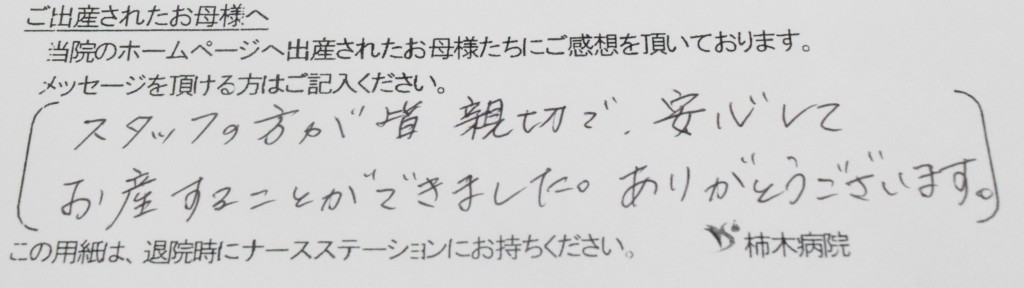 ご出産されたお母様へ
当院のホームページへ出産されたお母様たちにご感想を頂いております。
メッセージを頂ける方はご記入ください。
スタッフの方が皆 親切で、安心して
お産することができました。ありがとうございます。
この用紙は、退院時にナースステーションにお持ちください。 柿木病院